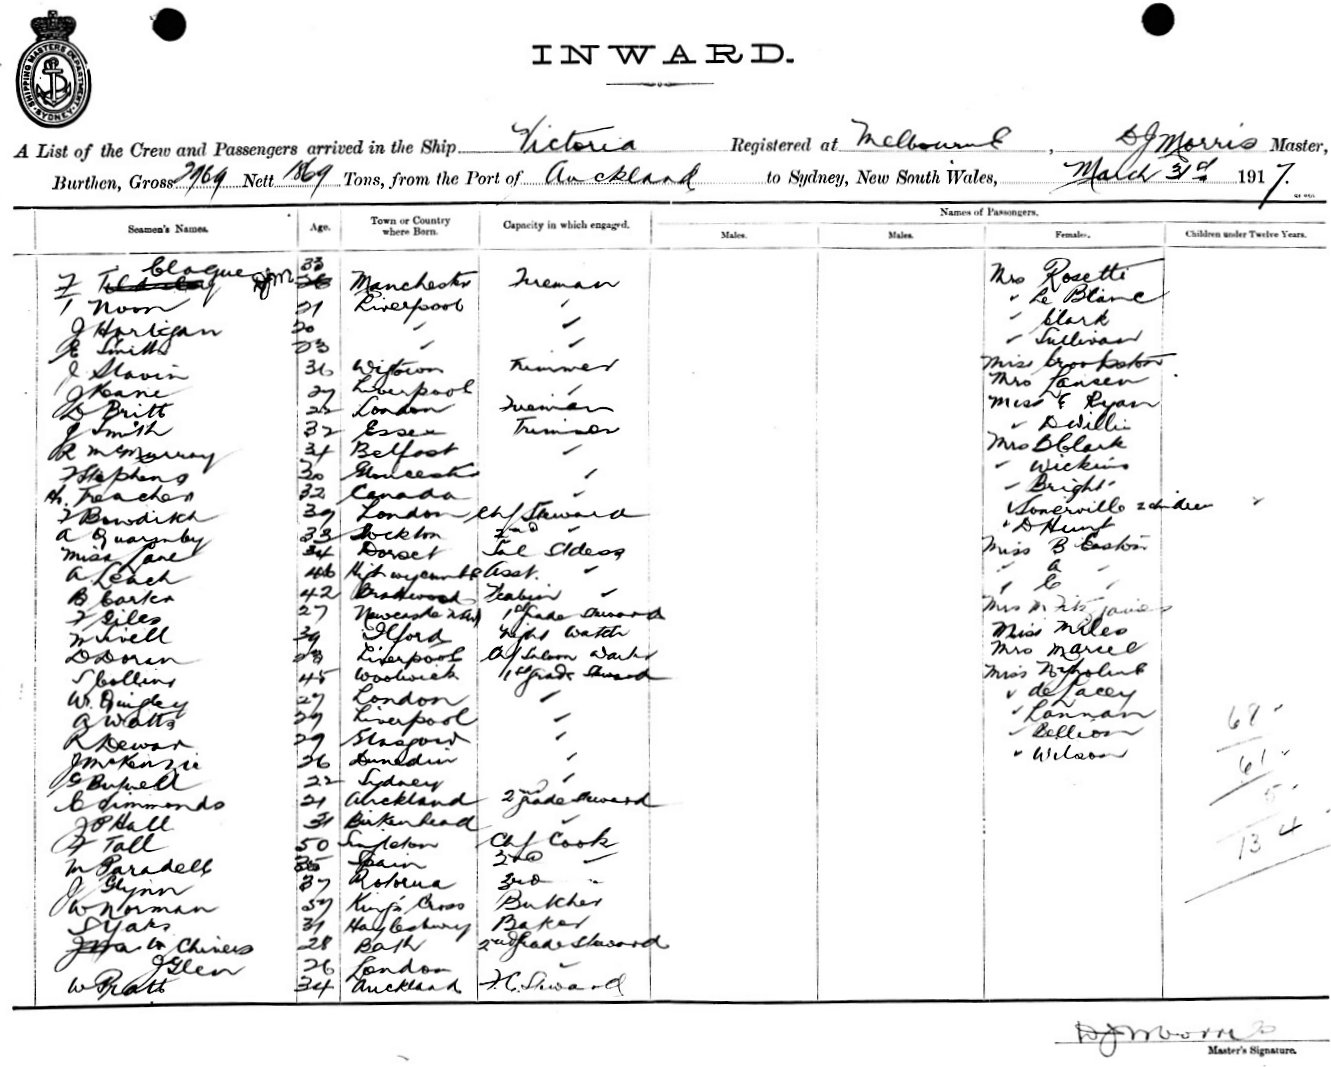 SHIPPING MASTERS DEPARTMENT SYDNEY
INWARD.
A List of the Crew and Passengers arrived in the Ship Victoria Registered at Melbourne, DJ Morris Master,
Burthen, Gross 2969 Nett 1869 Tons, from the Port of Auckland to Sydney, New South Wales, March 31st 1917.
Seamen's Names. Age. Town or Country where Born. Capacity in which engaged. Names of Passengers.
Males. Males. Females. Children under Twelve Years.
F Clague DJM 33 Manchester Fireman Mrs Rosette
T Noon 21 Liverpool " " Le Blanc
J Hartigan 20 " " " Clark
E Smith 23 " " " Sullivan
J Slavin 36 Wigtown Trimmer Miss Crookston
J Keane 27 Liverpool " Mrs Jansen
D Britt 22 London Fireman Miss E Ryan
J Smith 32 Essex Trimmer " D Willis
R McMurray 34 Belfast " Mrs B Clark
F Stephens 30 Gloucester " " Wickins
Treacher 32 Canada " " Bright
F Bowditch 39 London Chf Steward " Somerville 2 children "
A Quarmby 33 Stockton 2nd " " D Hunt
Miss Lane 34 Dorset Miss B Easton
A Leach 46 High wycombe Asst. " " A "
B Carter 42 " " C "
F Giles 27 Newcastle 1st grade Steward Mrs M
39 Ilford Night Watch Miss Miles
D Doran 28 Liverpool Chf Saloon Waiter Mrs Marcel
S Collins 45 Woolwich 1st grade Steward Miss
W. Quigley 27 London " " de Lacey
A Watts 29 Liverpool " " Lannan
R Dewar 29 Glasgow " " Bellion
J McKenzie 26 Dunedin " " Wilson
22 Sydney "
C Simmonds 21 Auckland 2nd grade Steward
J P Hall 31 Birkenhead "
F Tall 50 Singleton Chf Cook
M Paradell 35 Spain 2nd "
J Glynn 37 Rotorua 3rd "
W Norman 57 King's Cross Butcher
S Yars 31 Baker
W Chivers 28 Bath 2nd grade Steward
J Glen 26 London "
W Pratt 34 Auckland F.C. Steward
68
61
5
134
DJ Morris
Master's Signature.